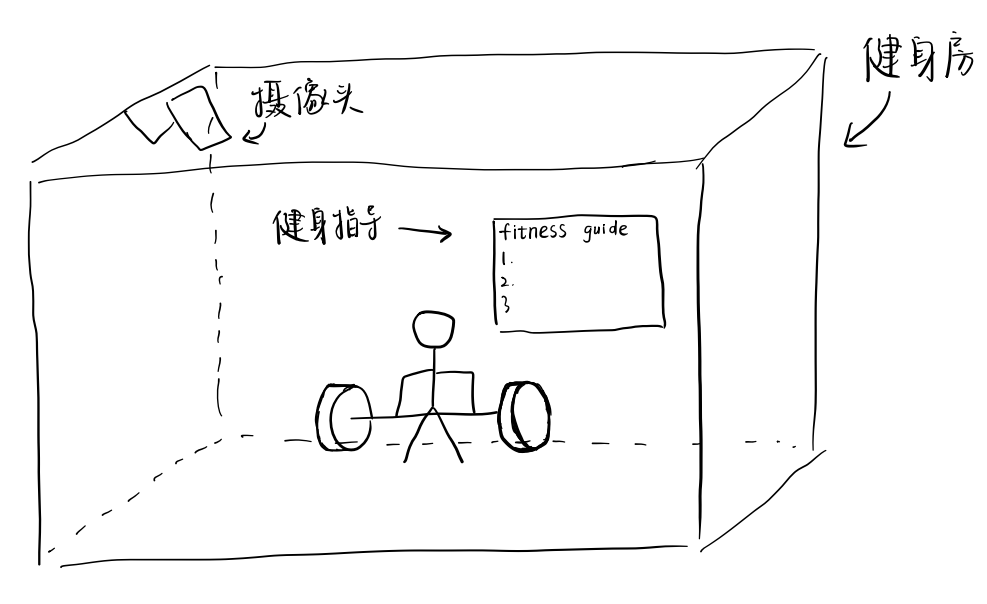 健身房
摄像头
健身指导
fitness guide
1.
2.
3